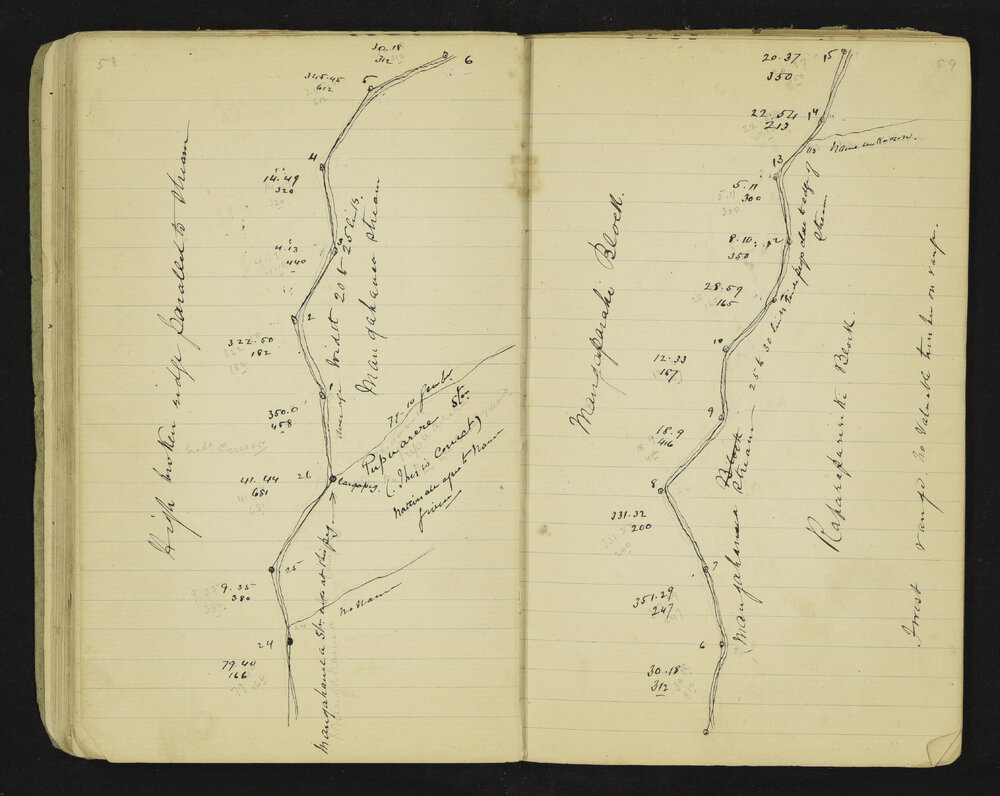 58
30.18
312
6
345.45
612
5
4
14.49
320
4.13
440
2
322.50
182
350.0
458
41.44
681
26
25
9.35
380
24
79.40
166
High broken ridge parallel to stream
average width 20 to 25 links.
Mangahanea stream
77-10
Pupuarere Str.
(This is correct)
Natives do agree to name
given
No name
Mangahanea Str. ends at this peg
59
20.37
350
15
22.54
213
14
13
Name unknown.
5.11
300
8.10
350
12
28.59
165
11
10
12.33
157
9
18.9
416
8
331.32
200
7
351.29
247
6
30.18
312
Mangaparahi Block.
Mangahanea Block
stream
25 to 30 links wide pegs close to edge of
stream
Raparaparirki Block.
Forest range. No valuable timber on range.